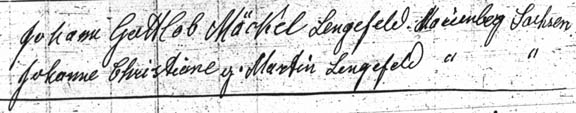 Johann Gottlob Mäckel Lengefeld Marienberg Sachsen
Johanne Christiane g. Martin Lengefeld " "